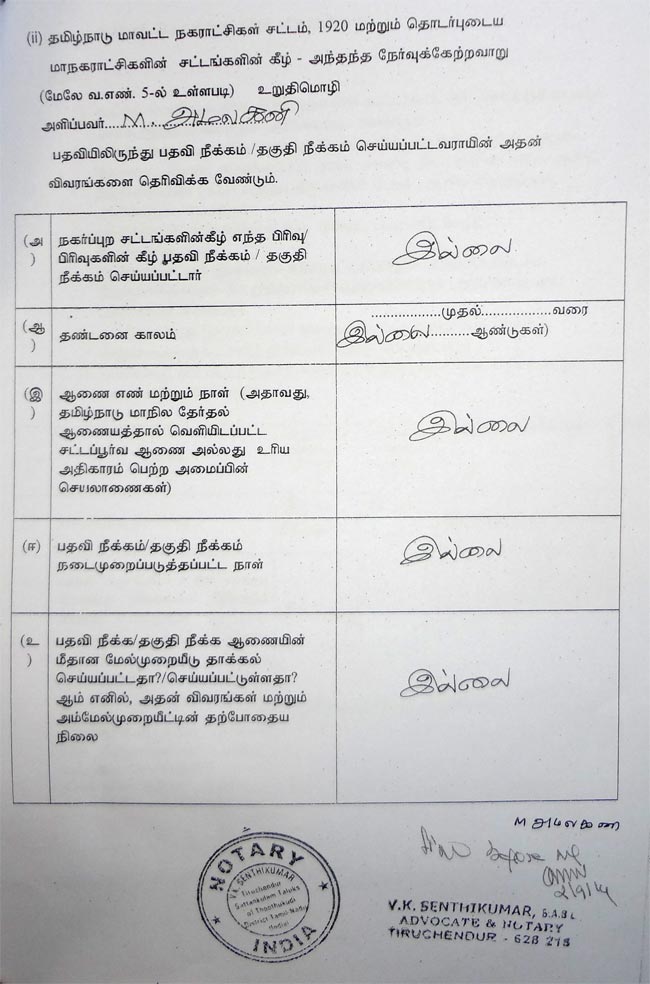 (ii) தமிழ்நாடு மாவட்ட நகராட்சிகள் சட்டம், 1920 மற்றும் தொடர்புடைய
மாநகராட்சிகளின் சட்டங்களின் கீழ் - அந்தந்த நேர்வுக்கேற்றவாறு
(மேலே வ.எண். 5-ல் உள்ளபடி) உறுதிமொழி
அளிப்பவர்....M. அமலகனி
பதவியிலிருந்து பதவி நீக்கம் /தகுதி நீக்கம் செய்யப்பட்டவராயின் அதன்
விவரங்களை தெரிவிக்க வேண்டும்.
(அ) நகர்ப்புற சட்டங்களின்கீழ் எந்த பிரிவு/
பிரிவுகளின் கீழ் பதவி நீக்கம் / தகுதி
நீக்கம் செய்யப்பட்டார்
இல்லை
(ஆ) தண்டனை காலம்
..................முதல்..................வரை
இல்லை..........ஆண்டுகள்)
(இ) ஆணை எண் மற்றும் நாள் (அதாவது,
தமிழ்நாடு மாநில தேர்தல்
ஆணையத்தால் வெளியிடப்பட்ட
சட்டப்பூர்வ ஆணை அல்லது உரிய
அதிகாரம் பெற்ற அமைப்பின்
செயலாணைகள்)
இல்லை
(ஈ) பதவி நீக்கம்/தகுதி நீக்கம்
நடைமுறைப்படுத்தப்பட்ட நாள்
இல்லை
(உ) பதவி நீக்க/தகுதி நீக்க ஆணையின்
மீதான மேல்முறையீடு தாக்கல்
செய்யப்பட்டதா?/செய்யப்பட்டுள்ளதா?
ஆம் எனில், அதன் விவரங்கள் மற்றும்
அம்மேல்முறையீட்டின் தற்போதைய
நிலை
இல்லை
M அமலகனி
before me
2/9/14
NOTARY
V.K. SENTHIKUMAR
Tiruchendur
Sattankulam Taluks
of Thoothukudi
District Tamil Nadu
(India)
INDIA
V.K. SENTHIKUMAR, B.A.B.L.
ADVOCATE & NOTARY
TIRUCHENDUR - 628 215